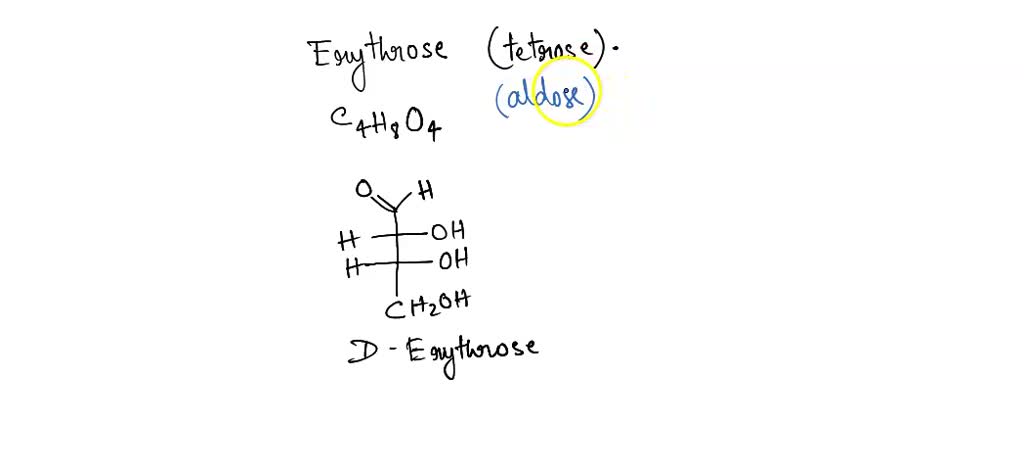 Erythrose (tetrose).
(aldose)
C4H8O4
O H
H OH
H OH
CH2OH
D - Erythrose